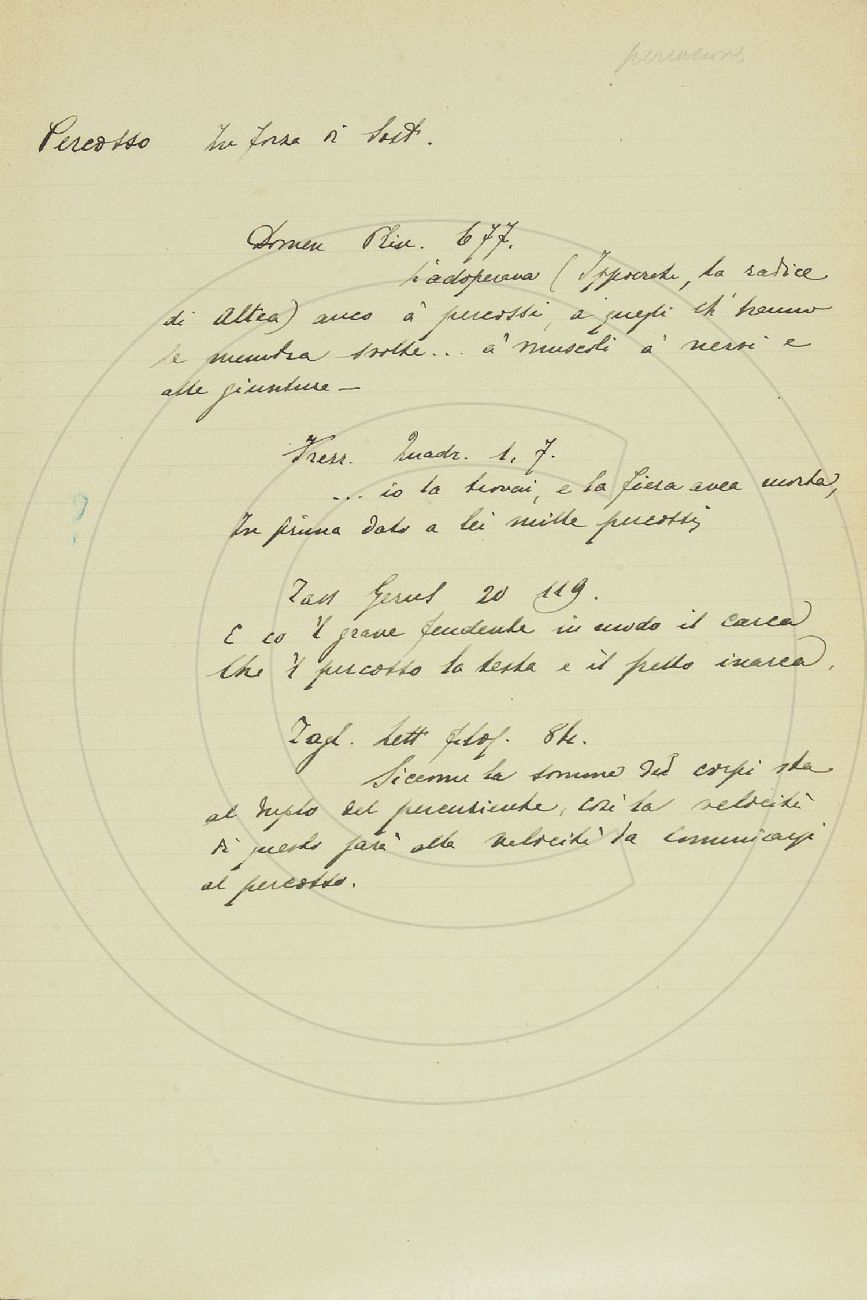 percussore
Percosso In forza di Sost.
Domen Plin. 677.
L'adoperava (Ippocrate, la radice
di Altea) anco a' percossi, a quegli ch' hanno
le membra svolte... a' muscoli a' nervi e
alle giunture —
Frezz. Quadr. 1, 7.
... io la trovai, e la fiera avea morta,
In prima dato a lei mille percossi;
Tass Gerus 20 119.
E co 'l grave fendente in modo il carca
Che 'l percosso la testa e il petto inarca.
Tagl. Lett filos. 84.
Siccome la somma dei corpi sta
al duplo del percuziente, così la velocità
di questo farà alla velocità da comunicarsi
al percosso.
?